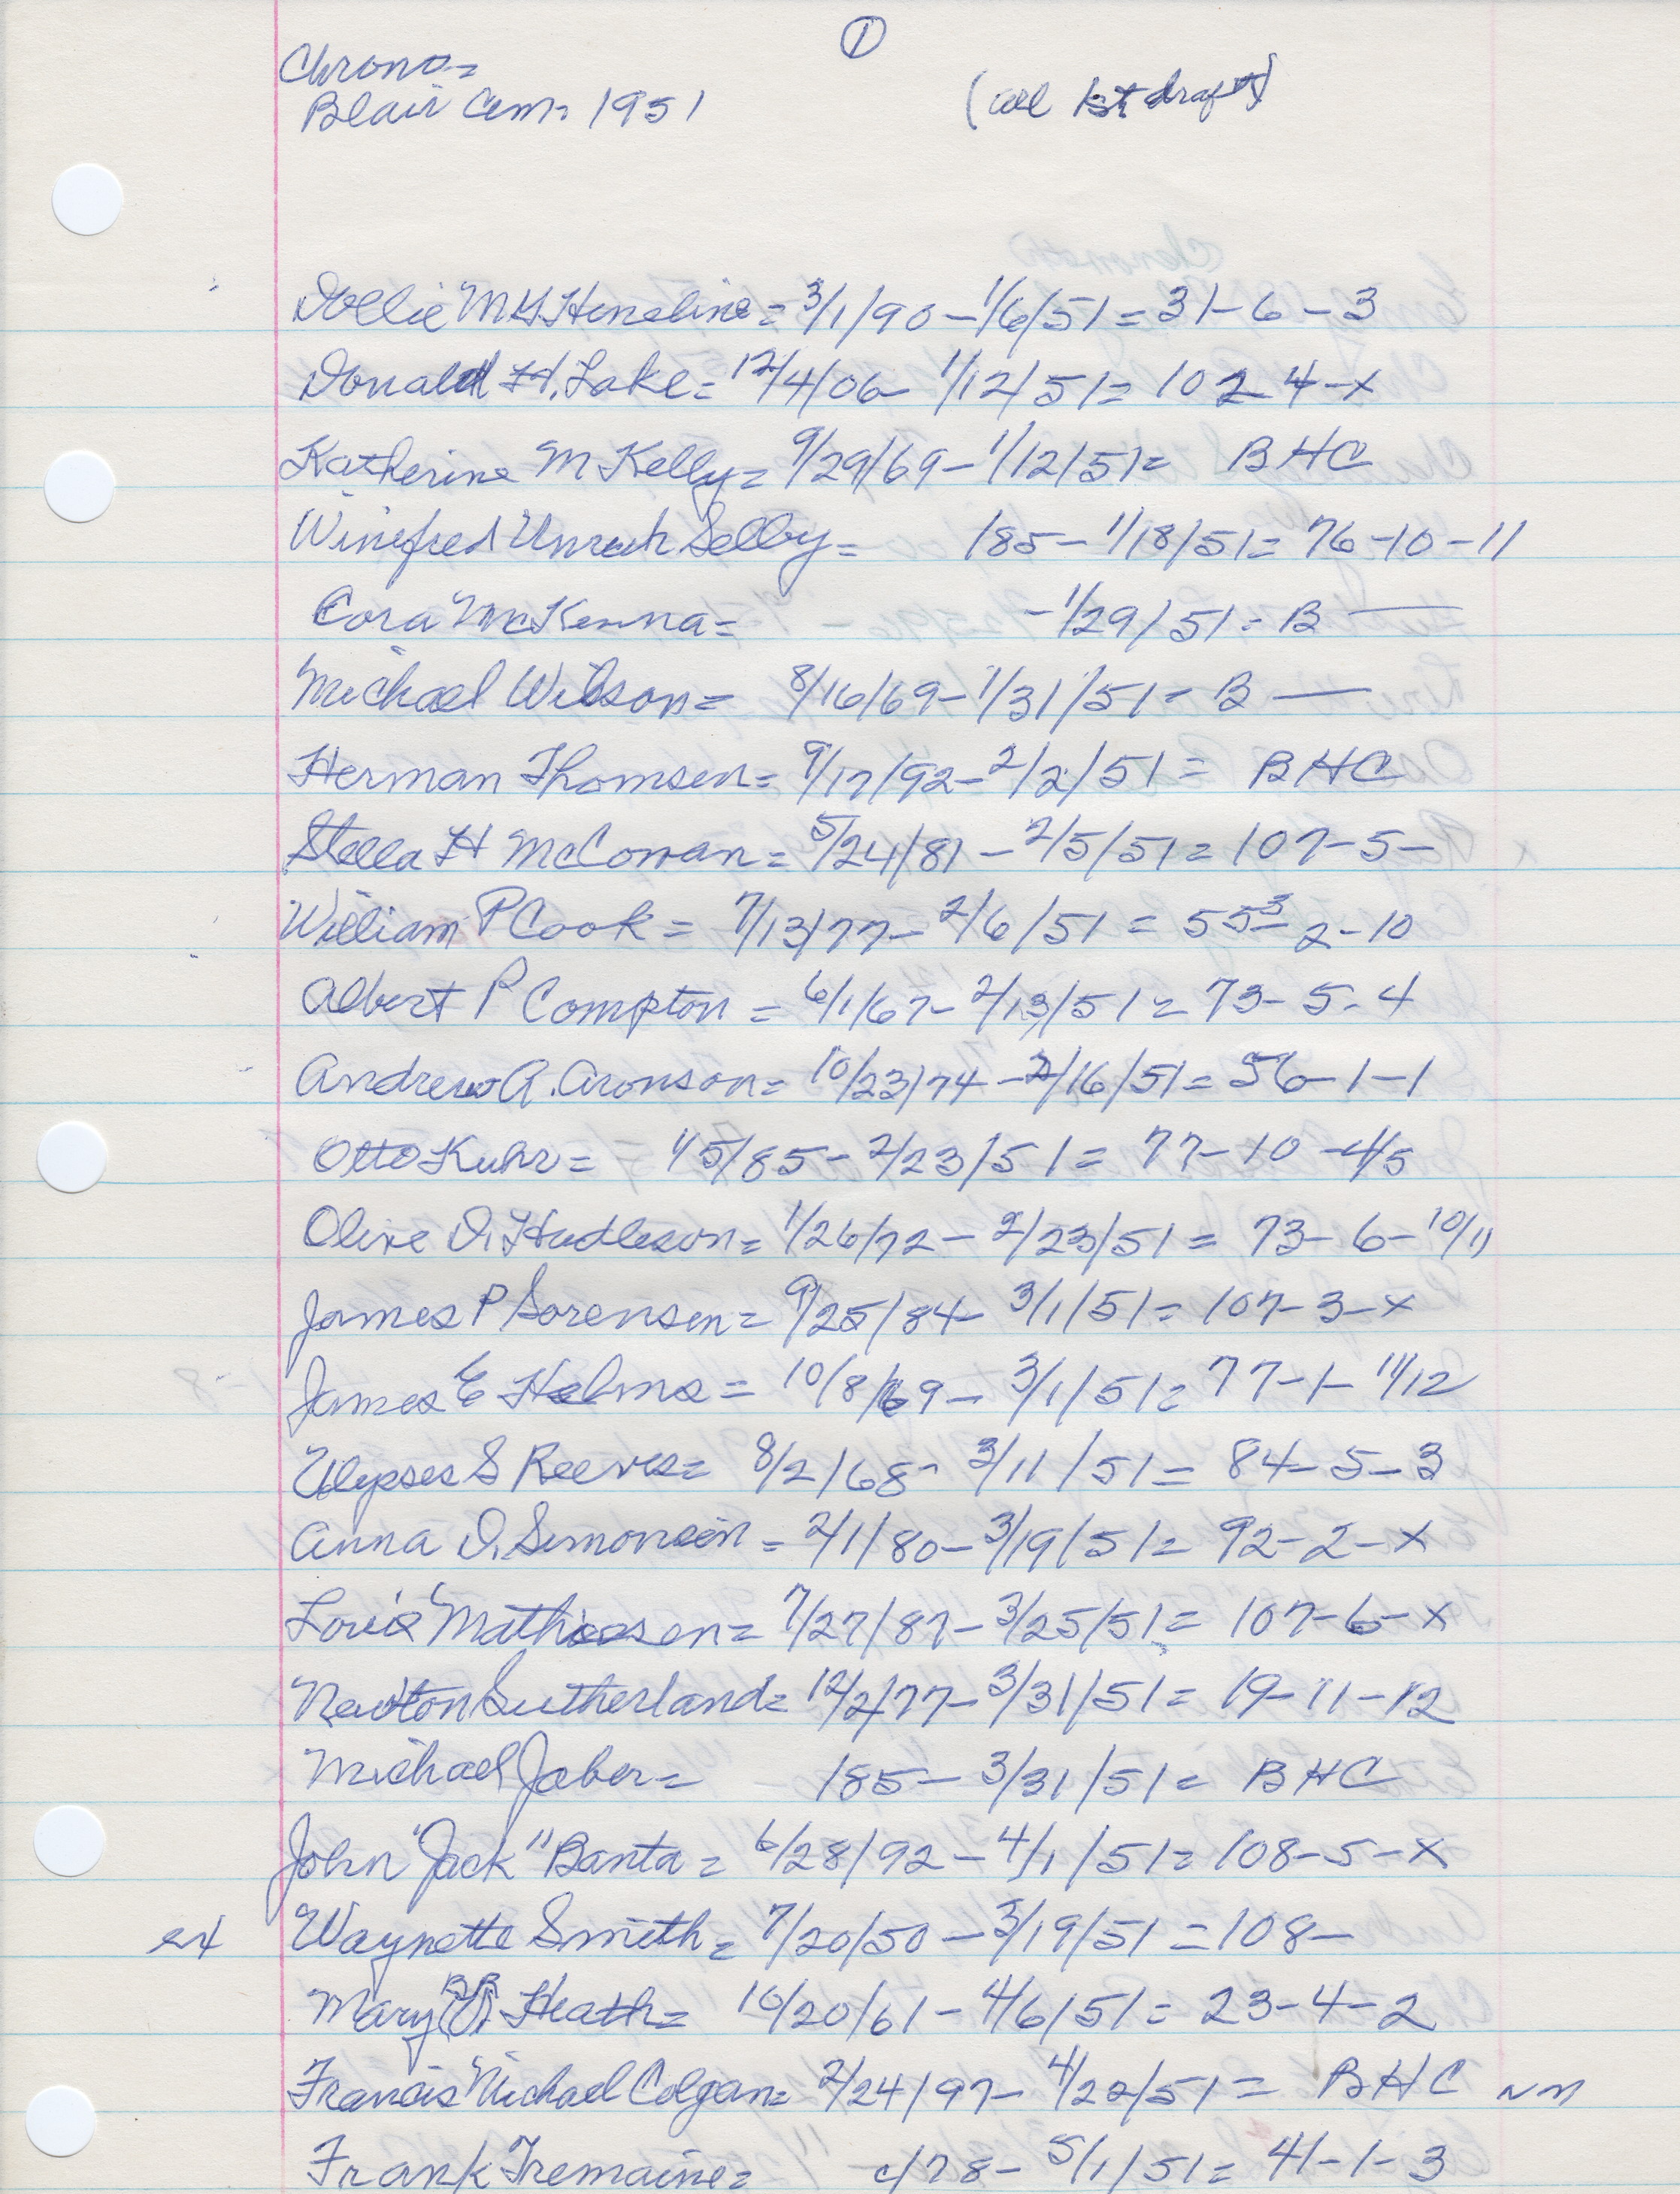 ①
Chrono=
(all 1st draft)
Blair Cem. 1951
Dollie M Hineline = 3/1/90 - 1/6/51 = 31-6-3
Donald H. Lake = 12/4/06 - 1/12/51 = 102-4-x
Katherine M Kelly = 9/29/69 - 1/12/51 = BHC
Winifred Unruh Selby = 185 - 1/18/51 = 76-10-11
Cora McKenna = - 1/29/51 = B —
Michael Wilson = 8/16/69 - 1/31/51 = B —
Herman Thomsen = 9/17/92 - 2/2/51 = BHC
Stella H McComan = 5/24/81 - 2/5/51 = 107-5-
William P Cook = 7/13/77 - 2/6/51 = 55 3 2-10
Albert P Compton = 6/1/67 - 2/13/51 = 73-5-4
Andrew A. Aronson = 10/23/74 - 2/16/51 = 56-1-1
Otto Kuhr = 1/5/85 - 2/23/51 = 77-10-4/5
Olive D. Hudleson = 1/26/72 - 2/23/51 = 73-6-10/11
James P Sorensen = 9/25/84 - 3/1/51 = 107-3-x
James E Helms = 10/8/69 - 3/1/51 = 77-1-11/12
Ulysses S Reeves = 8/2/68 - 3/11/51 = 84-5-3
Anna D. Simonsen = 2/1/80 - 3/19/51 = 92-2-x
Louis Mathiesen = 7/27/87 - 3/25/51 = 107-6-x
Newton Sutherland = 12/2/77 - 3/31/51 = 19-11-12
Michael Jaber = 185 - 3/31/51 = BHC
John "Jack" Banta = 6/28/92 - 4/1/51 = 108-5-x
ex Waynette Smith = 7/20/50 - 3/19/51 = 108-
Mary B. Heath = 10/20/61 - 4/6/51 = 23-4-2
Francis Michael Colgan = 2/24/97 - 4/22/51 = BHC nm
Frank Tremaine = c/78 - 5/1/51 = 41-1-3